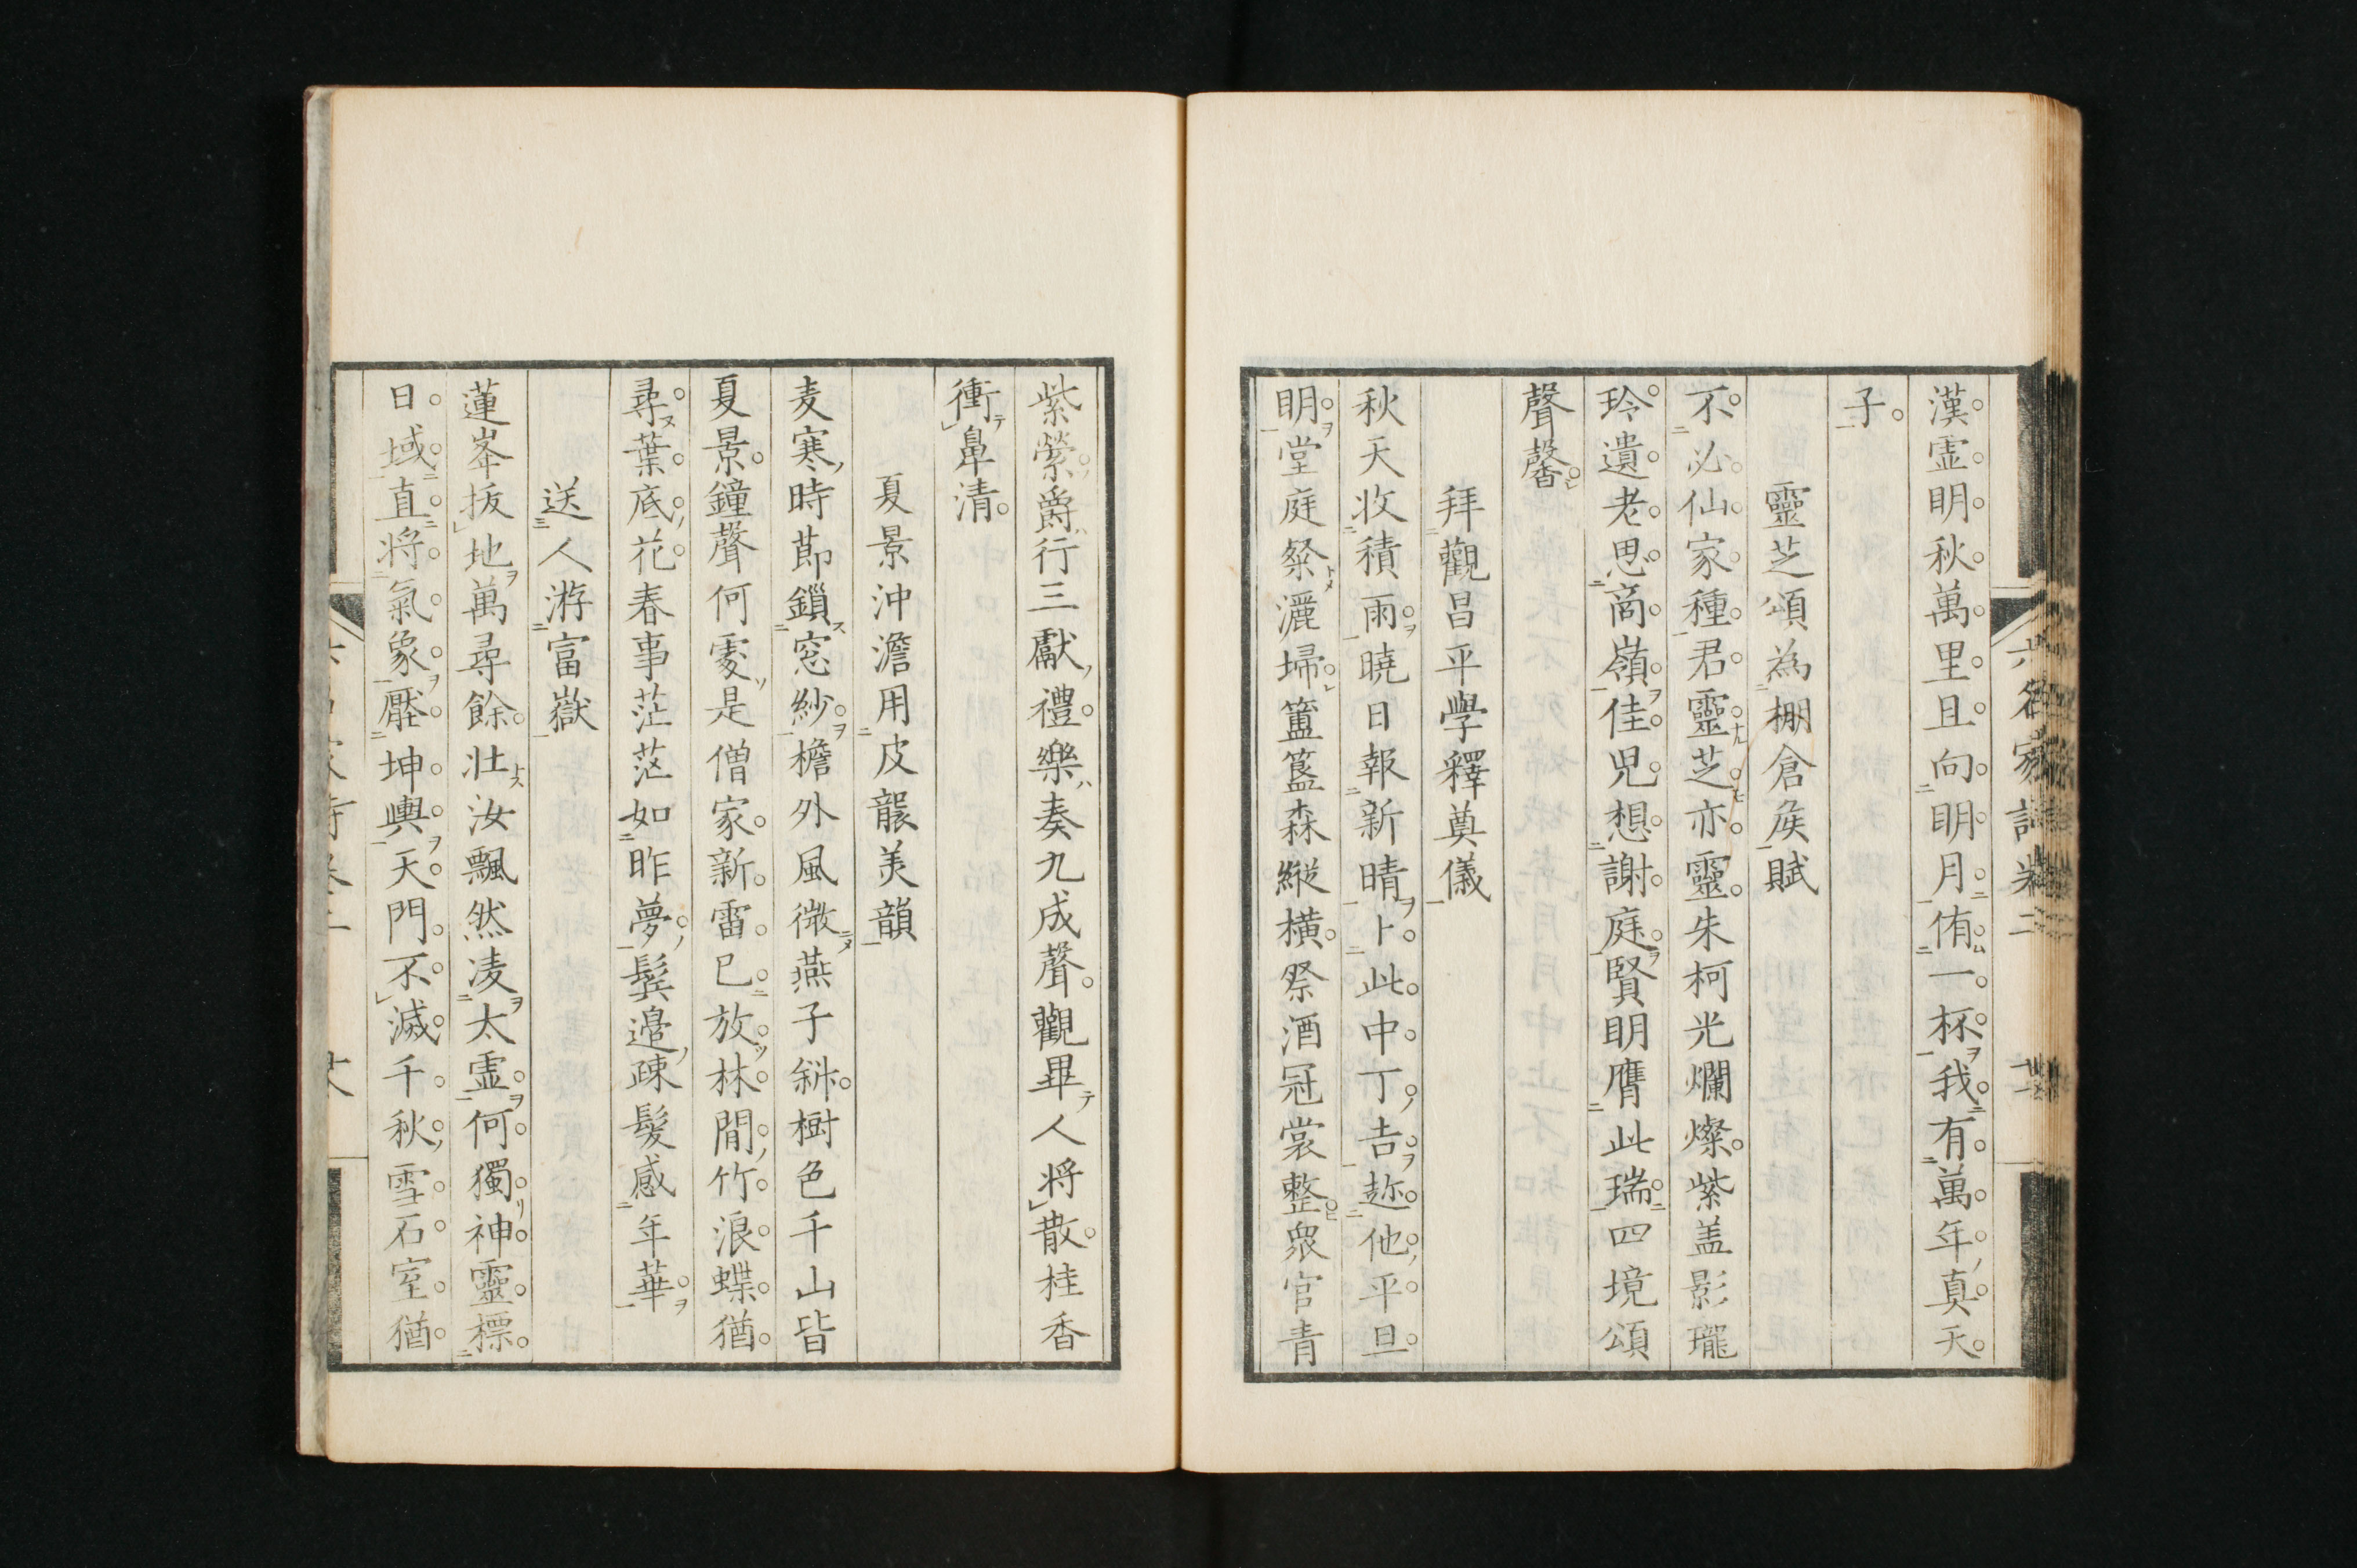 漢虛明秋萬里且向明月侑一杯我有萬年真天
子
靈芝頌為棚倉矦賦
不必仙家種君靈芝亦靈朱柯光爛燦紫盖影瓏
玲遺老思商嶺佳兒想謝庭賢明膺此瑞四境頌
聲馨
拜觀昌平學釋奠儀
秋天收積雨曉日報新晴卜此中丁吉趂他平旦
明堂庭粲灑埽簠簋森縱横祭酒冠裳整衆官青
紫縈爵行三獻禮樂奏九成聲觀畢人將散桂香
衝鼻清
夏景沖澹用皮襲美韻
麦寒時節鎻窓紗檐外風微燕子斜樹色千山皆
夏景鐘聲何處是僧家新雷已放林間竹浪蝶猶
尋葉底花春事茫茫如昨夢鬂邉疎髮感年華
送人游富嶽
蓮峯拔地萬尋餘壮汝飄然凌太虛何獨神靈標
日域直將氣象壓坤輿天門不滅千秋雪石室猶